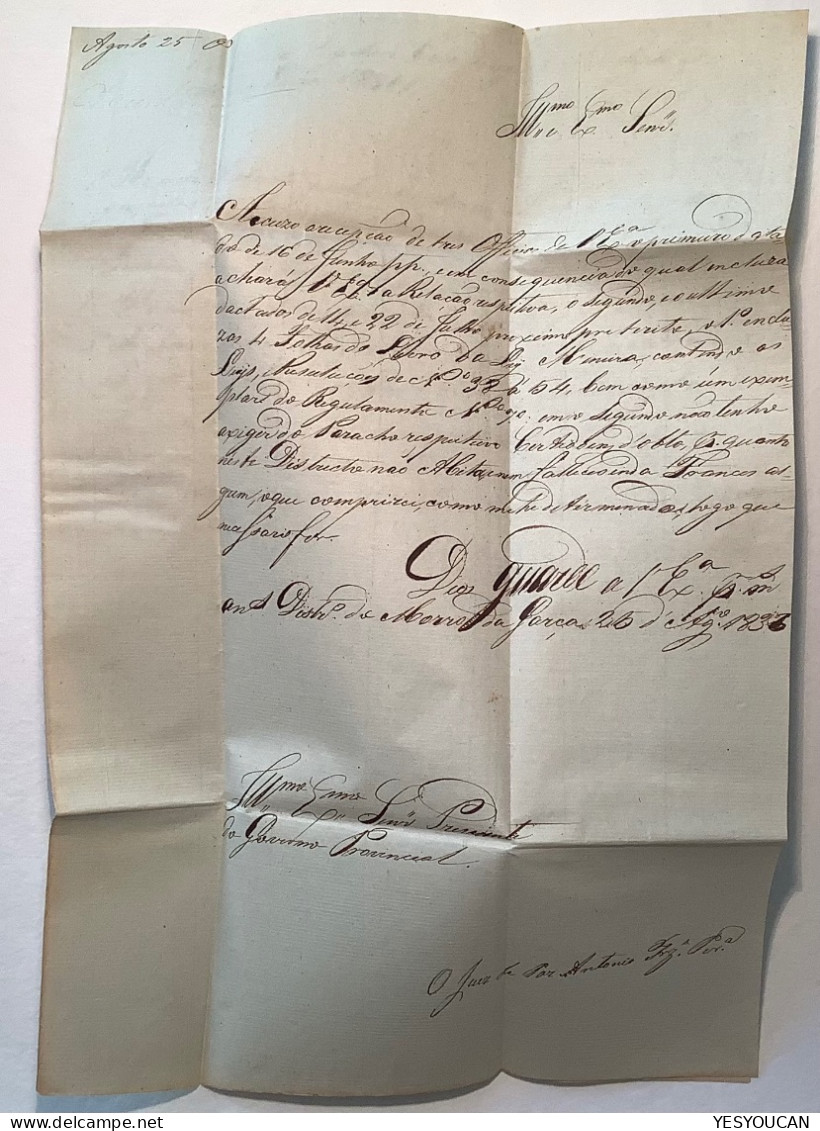 Agosto 25
Ill.mo e Ex.mo Senr.
Accuzo a recepção de tres Officios de V Ex.a o primeiro data
do de 16 de Junho pp., e em consequencia do qual incluza
achará V Ex.a a Relação respetiva, o segundo, e o ultimo
dactados de 14, e 22 de Julho proximo preterito, o 1.o inclu-
zas 4 Folhas do Livro da Ley Mineira, contendo as
Leys, e Rezoluções de N.o 33 á 54, bem como úm exem-
plar do Regulamento N.o em o segundo não tenho
exigido do Paracho respetivo Certidoens d'obto, p.r quanto
neste Districto não Abita, nem falleceo inda Francos al-
gum, o que comprirei, como me he determinado, logo que
nessario for.
Deos guarde a V Ex.a p.r m.s
an.s Distr.o do Morro da Garça 25 d' Ag.o 1836
Ill.mo Ex.mo Senr. Prezidente
do Governo Provincial.
O Juis de Paz Antonio Frz.a Per.a
YESYOUCAN